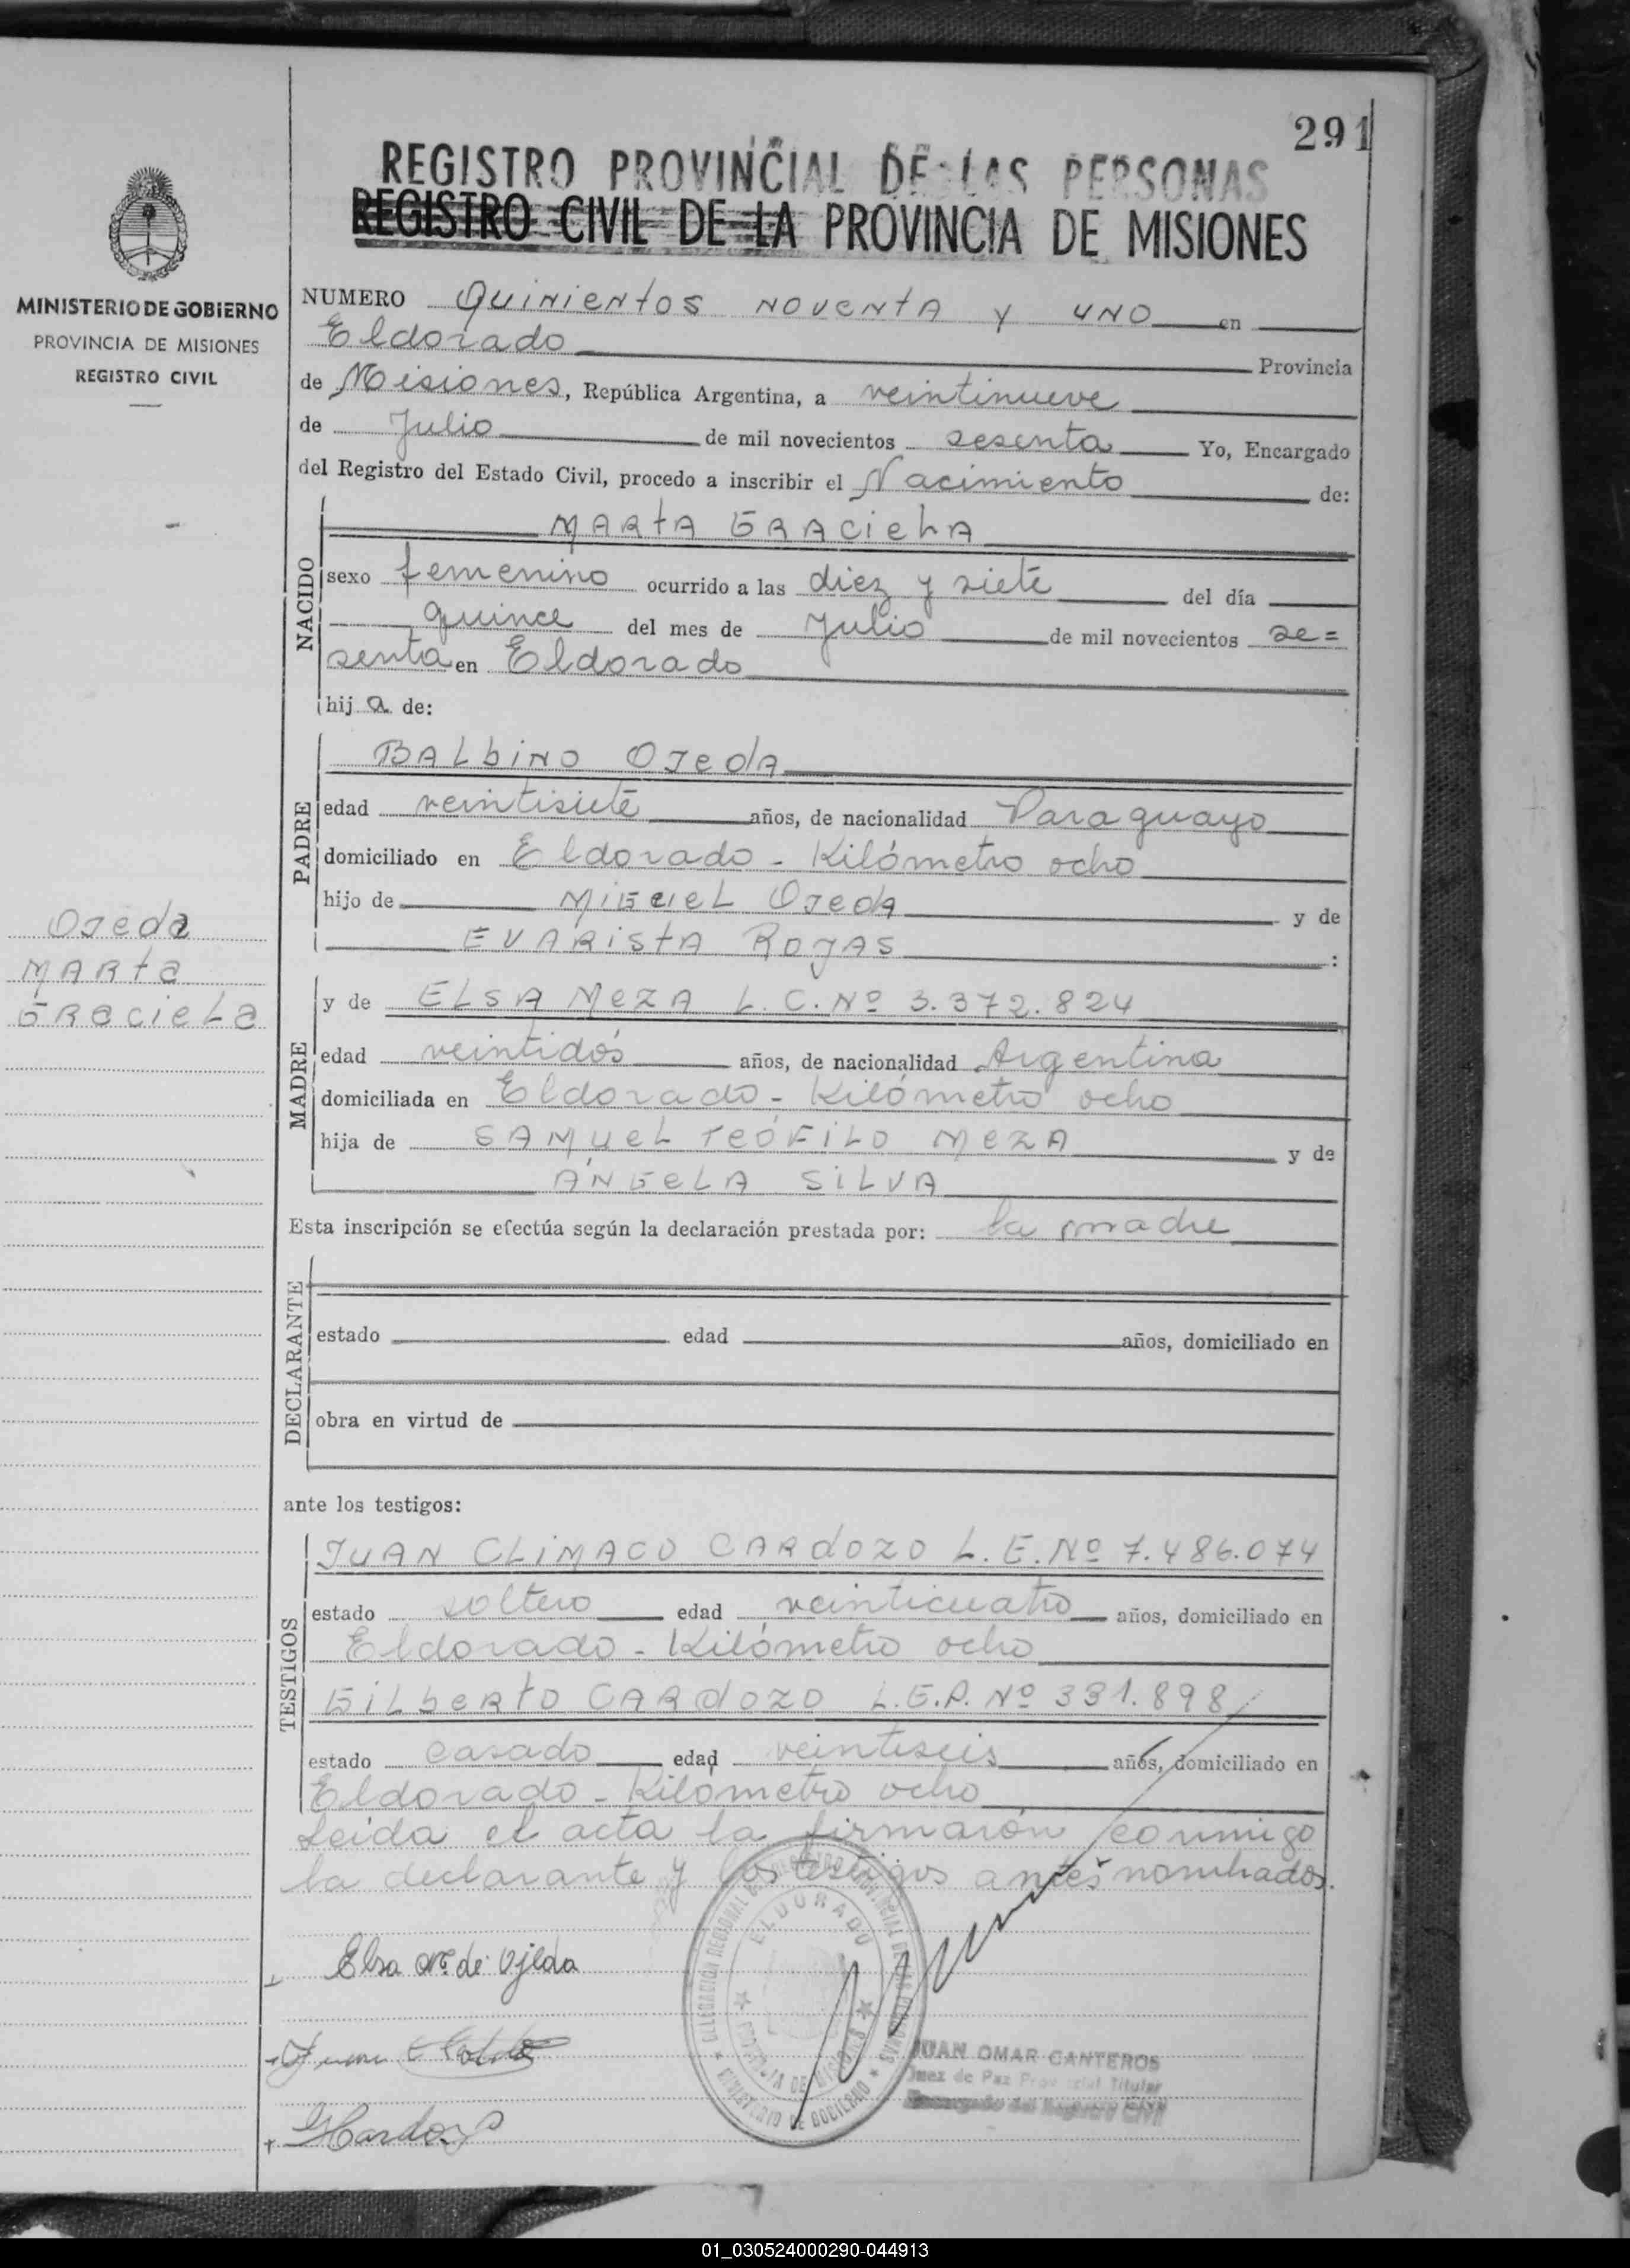 291
REGISTRO PROVINCIAL DE LAS PERSONAS
REGISTRO CIVIL DE LA PROVINCIA DE MISIONES
MINISTERIO DE GOBIERNO
PROVINCIA DE MISIONES
REGISTRO CIVIL
NUMERO Quinientos noventa y uno en
Eldorado Provincia
de Misiones, República Argentina, a veintinueve
de Julio de mil novecientos sesenta Yo, Encargado
del Registro del Estado Civil, procedo a inscribir el Nacimiento de:
NACIDO
MARTA GRACIELA
sexo femenino ocurrido a las diez y siete del día
quince del mes de Julio de mil novecientos se=
senta en Eldorado
hija de:
PADRE
BALBINO OJEDA
edad veintisiete años, de nacionalidad Paraguayo
domiciliado en Eldorado - Kilómetro ocho
hijo de MIGUEL OJEDA y de
EVARISTA ROJAS :
Ojeda
MARTA
GRACIELA
MADRE
y de ELSA MEZA L.C.Nº 3.372.824
edad veintidós años, de nacionalidad Argentina
domiciliada en Eldorado - Kilómetro ocho
hija de SAMUEL TEÓFILO MEZA y de
ÁNGELA SILVA
Esta inscripción se efectúa según la declaración prestada por: la madre
DECLARANTE
estado edad años, domiciliado en
obra en virtud de
ante los testigos:
TESTIGOS
JUAN CLIMACO CARDOZO L.E.Nº 7.486.074
estado soltero edad veinticuatro años, domiciliado en
Eldorado - Kilómetro ocho
GILBERTO CARDOZO L.E.P. Nº 331.898
estado casado edad veintiseis años, domiciliado en
Eldorado - Kilómetro ocho
Leida el acta la firmarón conmigo
la declarante y los testigos antes nombrados.
DELEGACIÓN REGIONAL DEL REGISTRO PROVINCIAL DE LAS PERSONAS
ELDORADO
PROVINCIA DE MISIONES
MINISTERIO DE GOBIERNO
Elsa Mº. de Ojeda
JUAN OMAR CANTEROS
Juez de Paz Provincial Titular
Encargado del Registro Civil
GCardozo
01_030524000290-044913